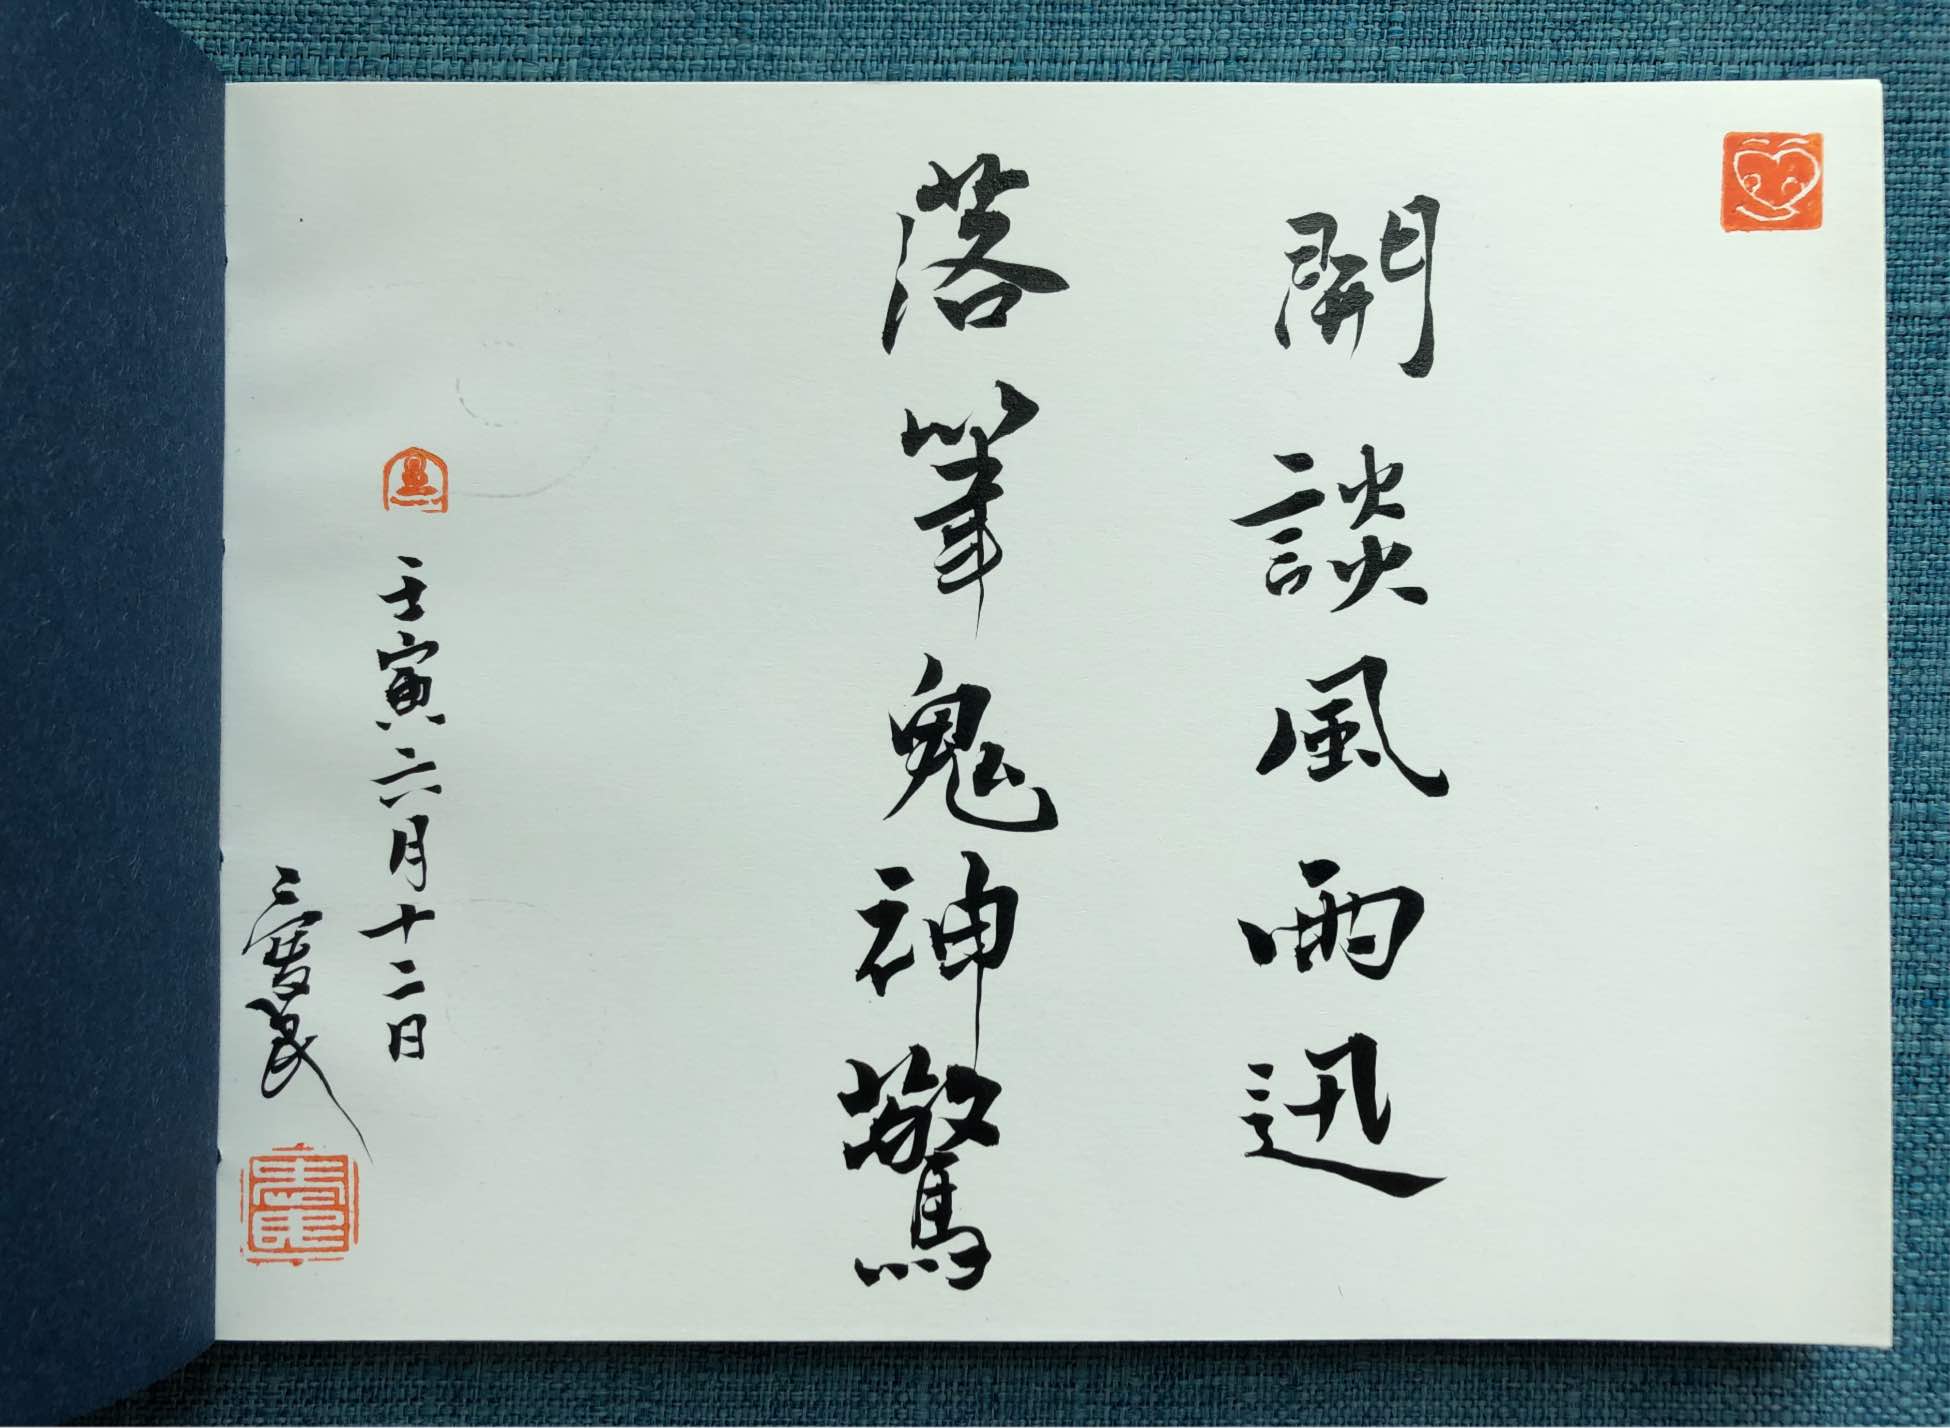 開談風雨迅
落筆鬼神驚
壬寅六月十二日